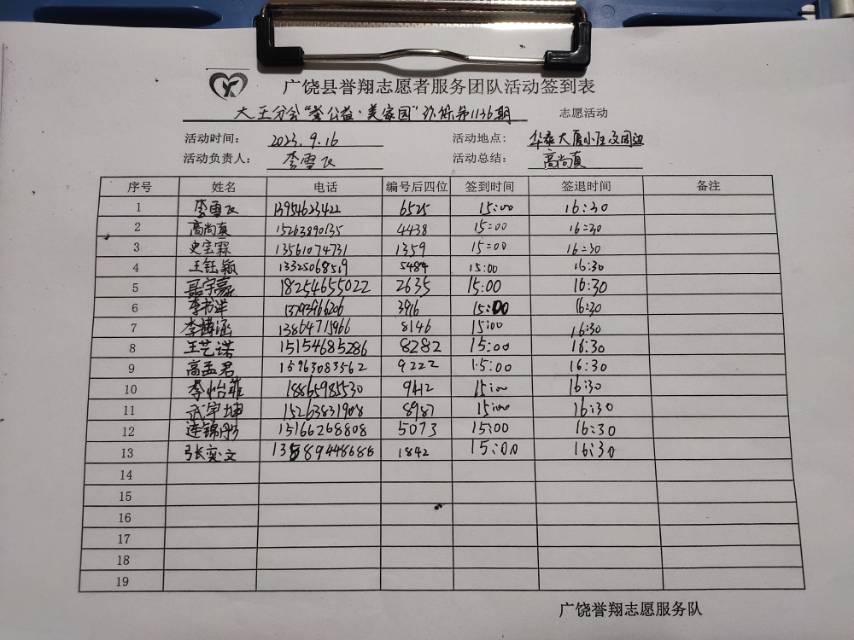 广饶县誉翔志愿者服务团队活动签到表
大王分会“益公益·美家园” 第1136期 志愿活动
活动时间: 2023.9.16 活动地点: 华泰大厦小区及周边
活动负责人: 李雪飞 活动总结: 高尚真
序号 姓名 电话 编号后四位 签到时间 签退时间 备注
1 李雪飞 13954623422 6525 15:00 16:30
2 高尚真 15263890135 4438 15:00 16:30
3 史宝霖 13561074731 1359 15:00 16:30
4 王钰颖 13325068519 5484 15:00 16:30
5 18254655022 2635 15:00 16:30
6 李书洋 13793966206 3916 15:00 16:30
7 李博涵 13864715966 8146 15:00 16:30
8 王艺诺 15154685286 8282 15:00 16:30
9 高孟君 15963083562 9222 15:00 16:30
10 李怡菲 18865985530 9412 15:00 16:30
11 武宇坤 15263831908 8987 15:00 16:30
12 连锦彤 15166268808 5073 15:00 16:30
13 张奕文 13589448686 1842 15:00 16:30
14
15
16
17
18
19
广饶誉翔志愿服务队